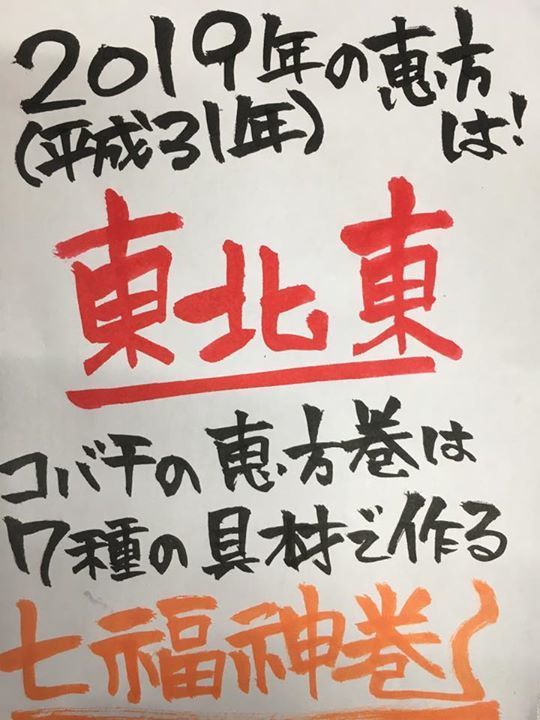 2019年の恵方
(平成31年) は!
東北東
コバチの恵方巻は
7種の具材で作る
七福神巻〜